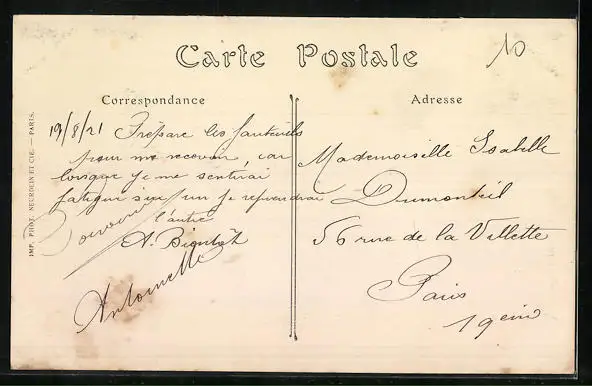 Carte Postale
10
Correspondance
Adresse
19/8/21 Prépare les fauteuils
pour me recevoir, car
lorsque je me sentirai
fatigué sur un je reprendrai
l'autre
A. Bientôt
Souvenir
Antoinette
Mademoiselle Isabelle
Dumonteil
56 rue de la Villette
Paris
19eme
IMP. PHOT. NEURDEIN ET CIE. — PARIS.